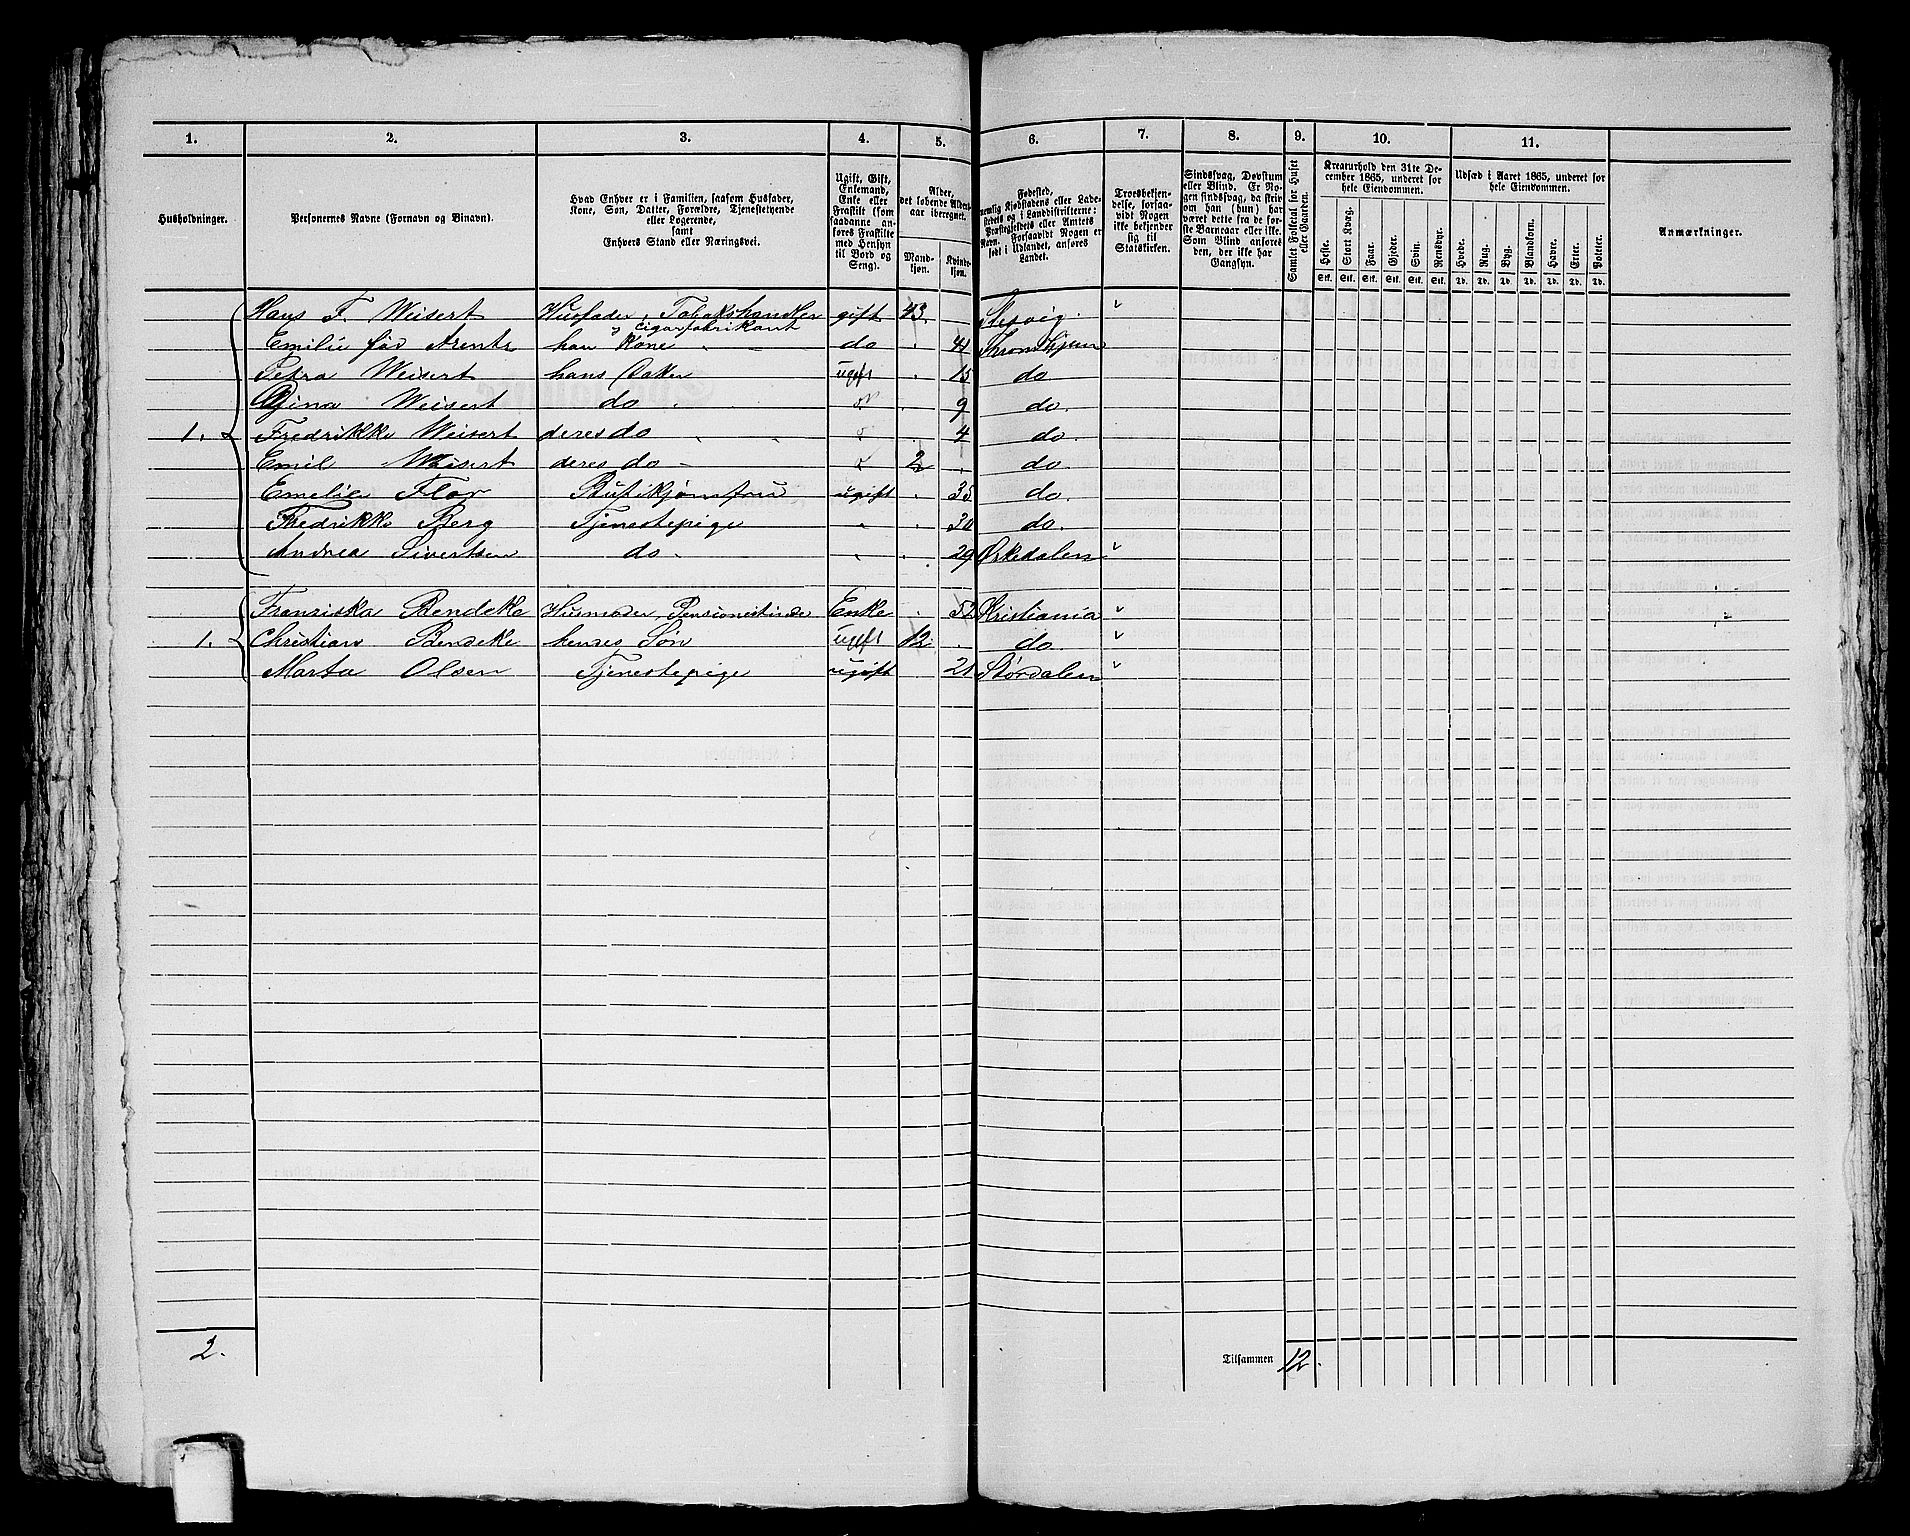 1. 2. 3. 4. 5. 6. 7. 8. 9. 10. 11.
Husholdninger.
Personernes Navne (Fornavn og Binavn).
Hvad Enhver er i Familien, saasom Husfader,
Kone, Søn, Datter, Forældre, Tjenestetyende
eller Logerende,
samt
Enhvers Stand eller Næringsvei.
Ugift, Gift,
Enkemand,
Enke eller
Fraskilt (som
saadanne an-
føres Fraskilte
med Hensyn
til Bord og
Seng).
Alder,
det løbende Alders-
aar iberegnet.
Mand-
kjøn.
Kvinde-
kjøn.
Fødested,
nemlig Kjøbstadens eller Lade-
stedets og i Landdistrikterne:
Præstegjeldets eller Amtets
Navn. Forsaavidt Nogen er
født i Udlandet, anføres
Landet.
Troesbekjen-
delse, forsaa-
vidt Nogen
ikke bekjender
sig til
Statskirken.
Sindssvag, Døvstum
eller Blind. Er No-
gen sindssvag, da skriv
om han (hun) har
været dette fra de før-
ste Barneaar eller ikke.
Som Blind anføres
den, der ikke har
Gangsyn.
Samlet Folketal for Huset
eller Gaarden.
Kreaturhold den 31te De-
cember 1865, underet for
hele Eiendommen.
Heste. Stort Kvæg. Faar. Gjeder. Svin. Rensdyr.
Stk. Stk. Stk. Stk. Stk. Stk.
Udsæd i Aaret 1865, underet for
hele Eiendommen.
Hvede. Rug. Byg. Blandkorn. Havre. Erter. Poteter.
Td. Td. Td. Td. Td. Td. Td.
Anmærkninger.
Hans F. Weisert Husfader, Tabakshandler gift 43.
& Cigarfabrikant
Emilie fød Arentz han Kone do 41 Thronhjem
Petra Weisert hans Datter ugift 15 do
Gina Weisert do. 9 do.
1. Fredrikke Weisert deres do 4 do.
Emil Weisert deres do 2 do
Emelie Flor Butikjomfru ugift 35 do.
Fredrikke Berg Tjenestepige 30 do.
Andrea Sivertsen do. 29 Ørkedalen
Franziska Bendeke Husmoder, Pensionistinde Enke 52 Kristiania
1. Christian Bendeke hendes Søn ugift 12. do
Marta Olsen Tjenestepige ugift 21 Størdalen
2. Tilsammen 12.